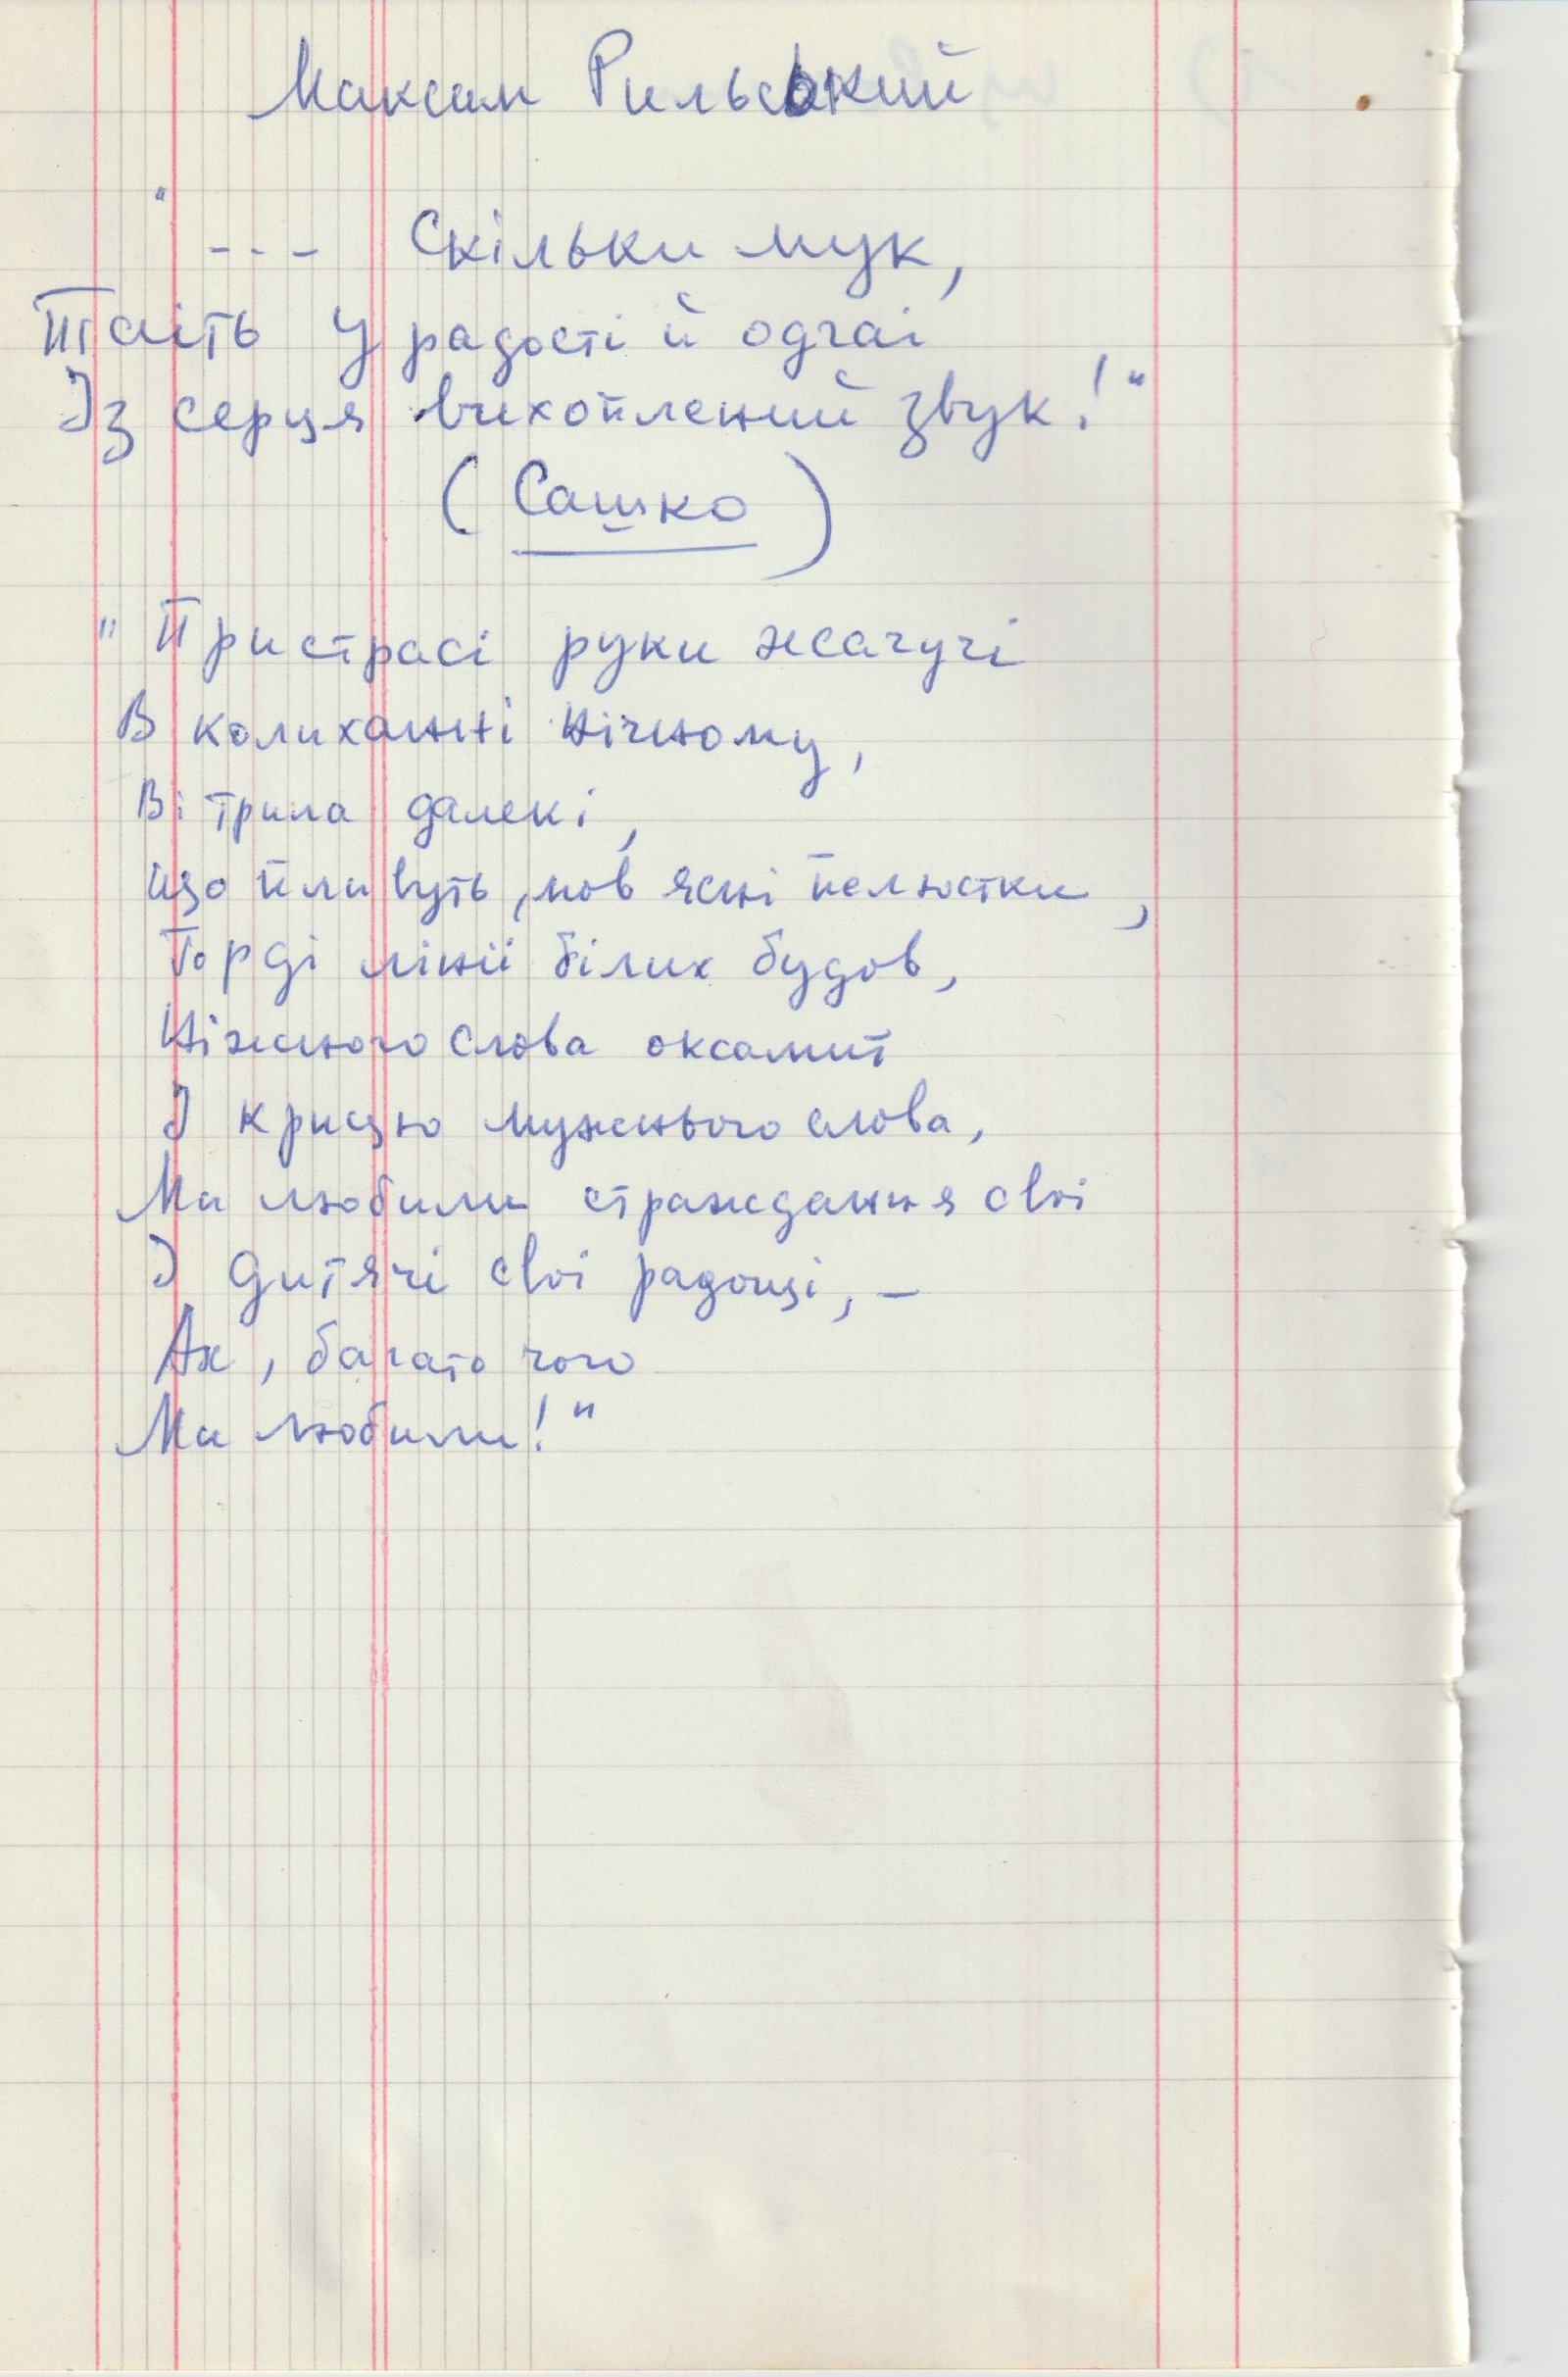 Максим Рильський
"--- Скільки мук,
Таїть у радості й одчаї
Із серця вихоплений звук!"
(Сашко)
"Пристрасі руки жагучі
В колиханні нічному,
Вітрила далекі,
що пливуть, мов ясні пелюстки,
Горді лінії білих будов,
Ніжного слова оксамит
І крицю мужнього слова,
Ми любили страждання свої
І дитячі свої радощі, –
Ах, багато чого
Ми любили!"